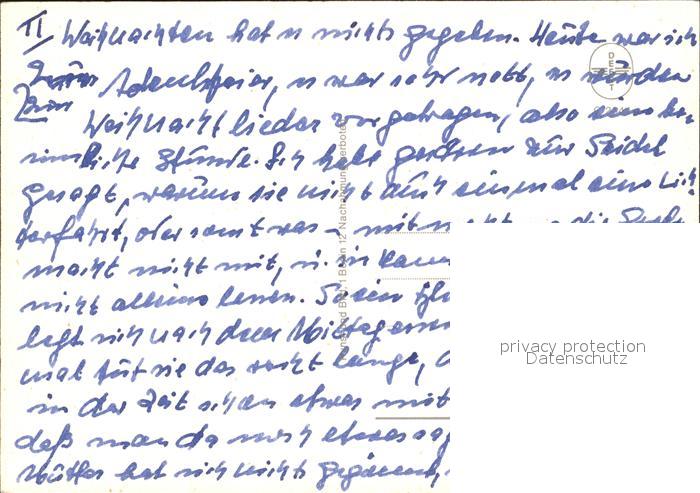 II Weihnachten hat es nichts gegeben. Heute war ich
zur
Zur Adventsfeier, es war sehr nett, es wurden
Weihnachtslieder vorgetragen, also eine be-
sinnliche Stunde. Ich habe gestern zur Seidel
gesagt, warum sie nicht auch einmal eine Lich
terfahrt, oder sonst was - mit
macht nicht mit, u. sie kann
nicht alleine lassen. So ein
legt sich nach dem Mittagessen
mal tut sie das recht lange,
in der Zeit schon etwas mit
daß man da noch etwas sag
Mutter hat sich nichts gegönnt,
DE
T
1 Berlin 12 Nachahmung verboten
privacy protection
Datenschutz